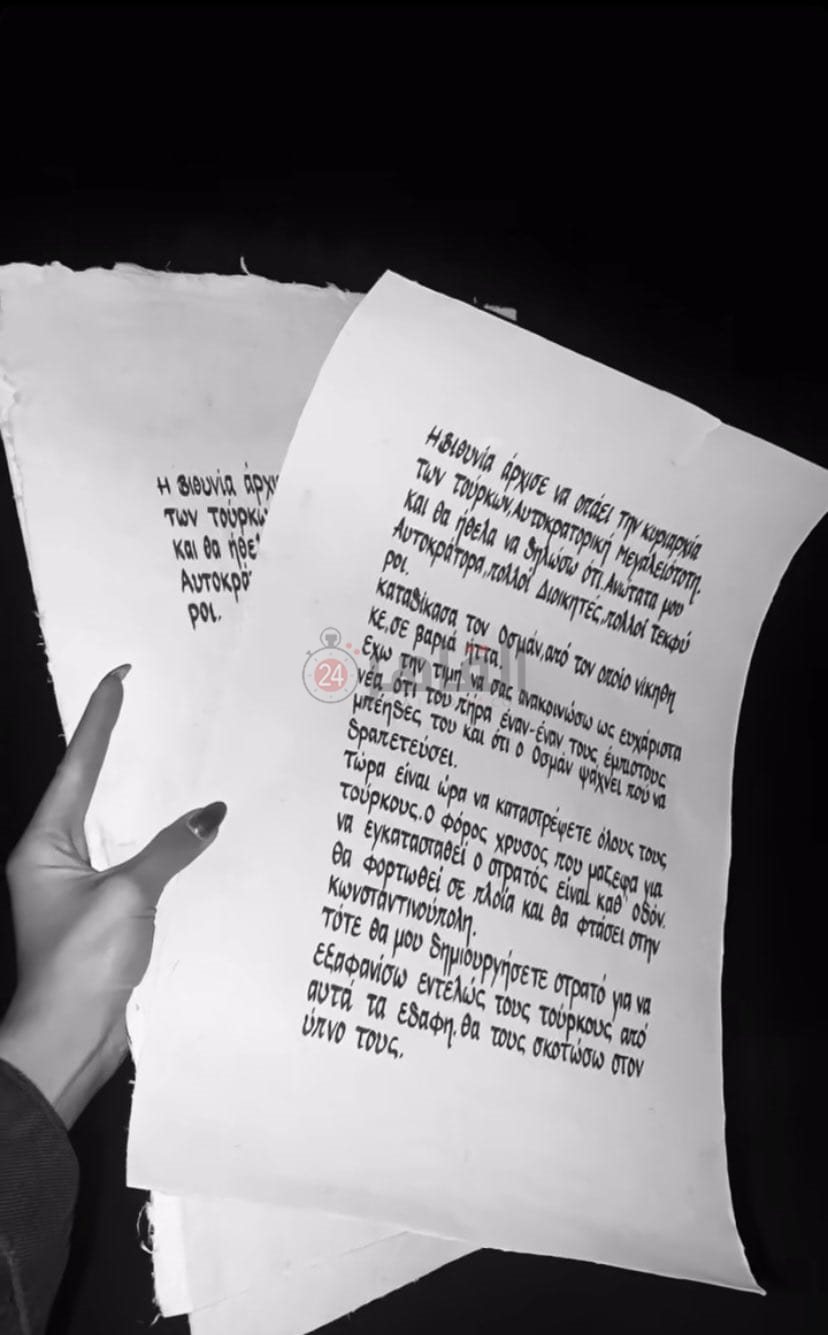 Η Βιθυνία άρχι
των τούρκω
και θα ήθε
Αυτοκρά
ροι.
Η Βιθυνία άρχισε να σπάει την κυριαρχία
των τούρκων, Αυτοκρατορική μεγαλειότοτη.
και θα ήθελα να δηλώσω ότι, Ανώτατα μου
Αυτοκράτορα, πολλοί Διοικητές, πολλοί τεκφύ
ροι.
καταδίκασα τον Οσμάν, από τον οποίο νίκηθη
κε, σε βαριά ήττα.
εχω την τιμή να σας ανακοινώσω ως ευχάριστα
νέα ότι του πήρα έναν-έναν τους έμπιστους
μπέηδες του και ότι ο Οσμάν ψάχνει πού να
δραπετεύσει.
τώρα είναι ώρα να καταστρέψετε όλους τους
τούρκους. Ο φόρος χρυσος που μαζεψα για
να εγκατασταθεί ο στρατός είναι καθ' οδόν.
θα φορτωθεί σε πλοία και θα φτάσει στην
κωνσταντινούπολη.
τότε θα μου δημιουργήσετε στρατό για να
εξαφανίσω εντελώς τους τούρκους από
αυτά τα εδαφη. θα τους σκοτώσω στον
ύπνο τους.
24 القاهرة